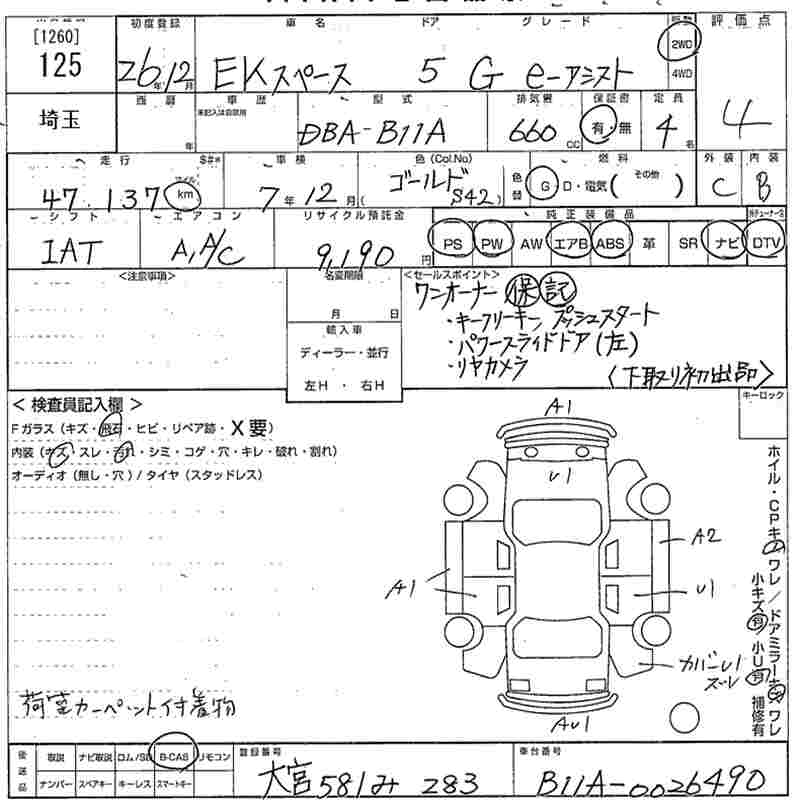 [1260]
125
埼玉
初度登録 車名 ドア グレード 評価点
26年12月 EKスペース 5 G e-アシスト 2WD 4WD 4
西暦 年 車歴 未記入は自家用 型式 DBA-B11A 排気量 660 CC 保証書 有・無 定員 4名
走行 $#* 車検 色(Col.No) 燃料 外装 内装
47,137 マイル km 7年12月 ( ゴールド S42 ) 色替 G・D・電気( その他 ) C B
シフト エアコン リサイクル預託金 純正装備品
IAT A,A/C 9,190円 PS PW AW エアB ABS 革 SR ナビ DTV
<注意事項> 名変期限 <セールスポイント>
月 日
輸入車
ディーラー・並行
左H ・ 右H
ワンオーナー 保 記
・キーフリーキー,プッシュスタート
・パワースライドドア(左)
・リヤカメラ
〈下取り初出品〉
キーロック
<検査員記入欄>
Fガラス(キズ・飛石・ヒビ・リペア跡・X要)
内装(キズ・スレ・汚れ・シミ・コゲ・穴・キレ・破れ・割れ)
オーディオ(無し・穴)/タイヤ(スタッドレス)
A1
U1
A2
A1
U1
カバーU1
ズレ
AU1
ホイル・CPキズワレ/ドアミラーキズワレ
小キズ有 小U有 補修有
荷室カーペット付着物
後送品 取説 ナビ取説 ロム/SD B-CAS リモコン
ナンバー スペアキー キーレス スマートキー
登録番号
大宮 581み 283
車台番号
B11A-0026490